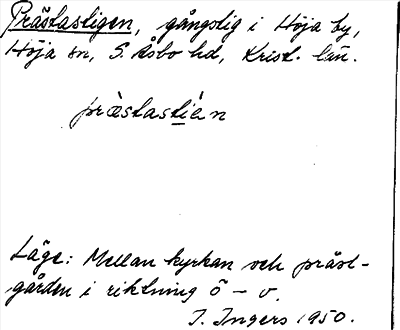 Prästastigen, gångstig i Höja by,
Höja sn, S. Åsbo hd, Krist. län.
præ̀stastíėn
Läge: Mellan kyrkan och präst-
gården i riktning ö - v.
I. Ingers 1950.